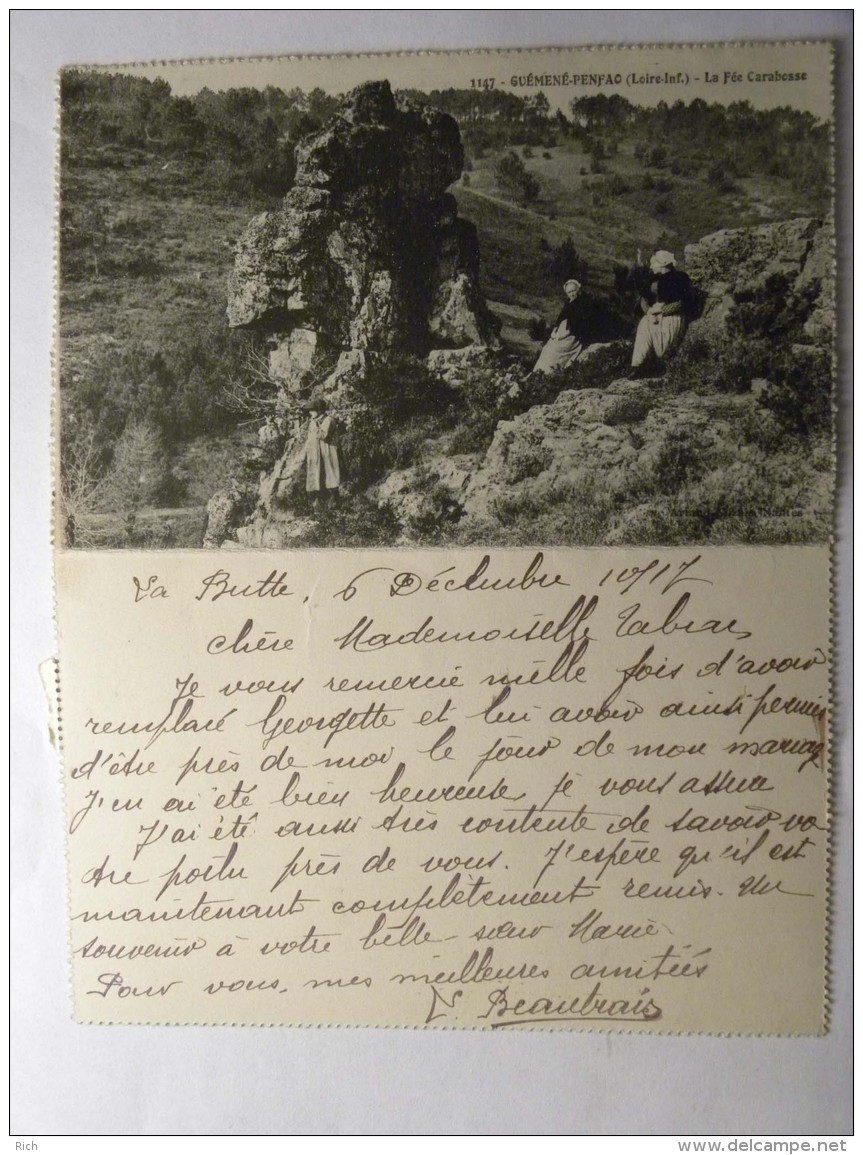 1147 - GUÉMENÉ-PENFAO (Loire-Inf.) - La Fée Carabosse
La Butte, 6 Décembre 1917
Chère Mademoiselle
Je vous remercie mille fois d'avoir
remplacé Georgette et lui avoir ainsi permis
d'être près de moi le jour de mon mariage
J'en ai été bien heureuse, je vous assure
J'ai été aussi très contente de savoir vo
tre poilu près de vous. J'espère qu'il est
maintenant complètement remis. Un
souvenir à votre belle-sœur Marie.
Pour vous, mes meilleures amitiés
Beautrais
Rich
www.delcampe.net